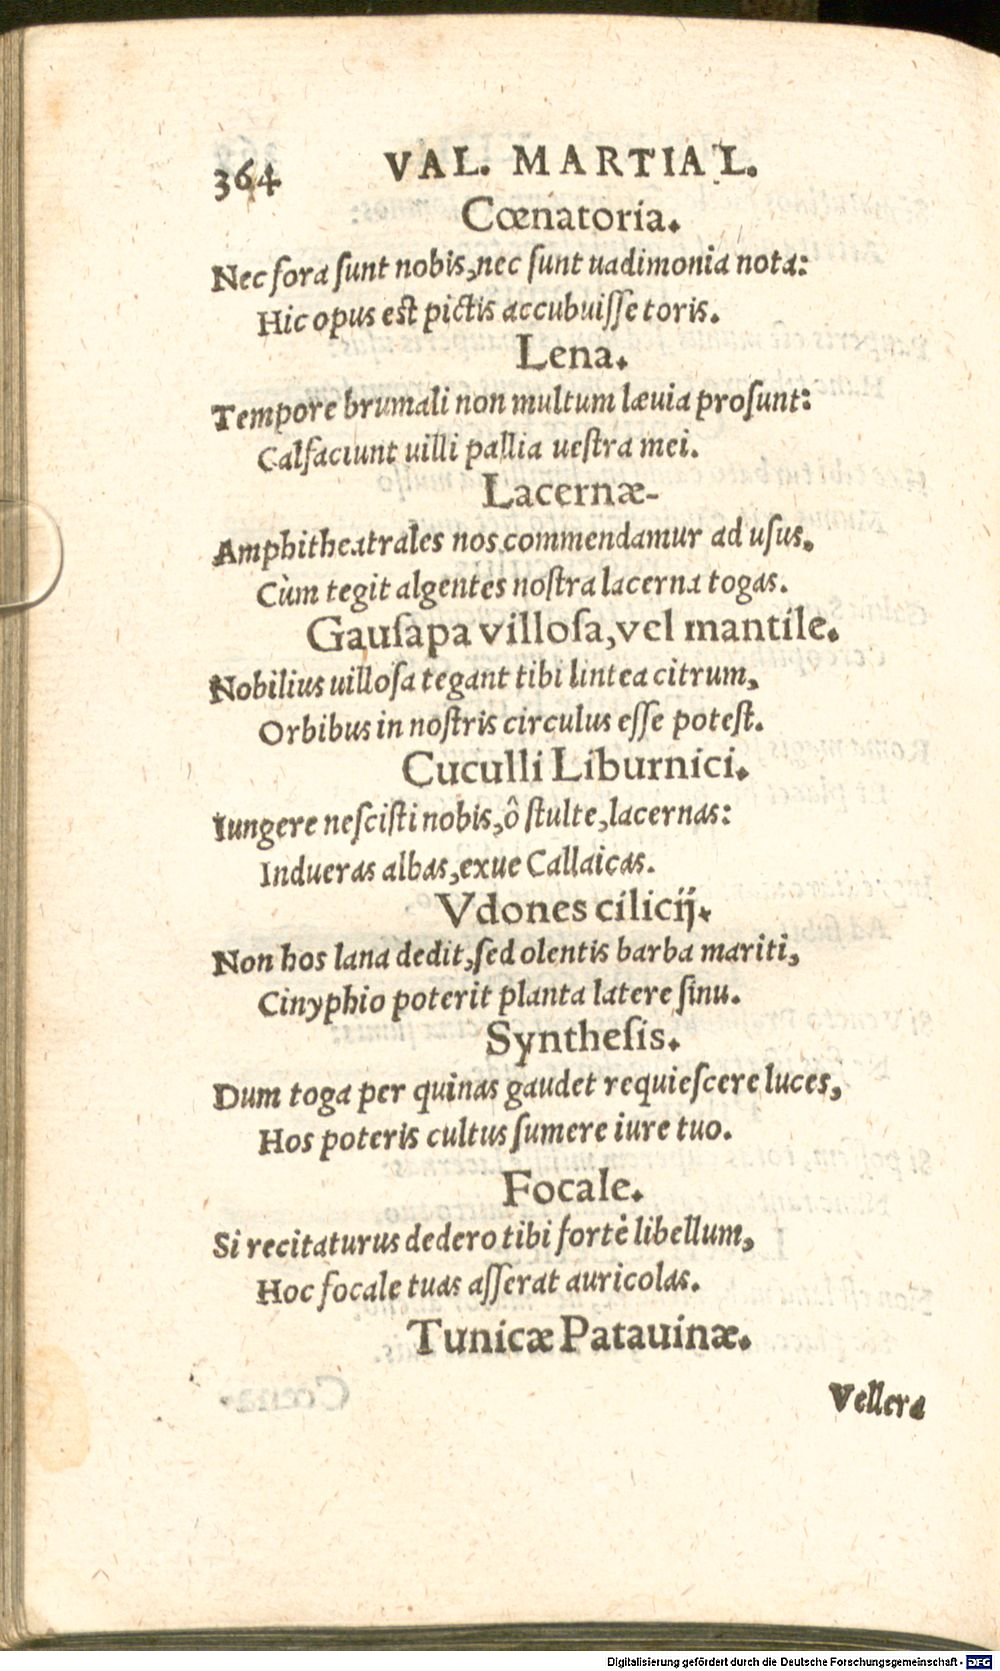 364 VAL. MARTIAL.
Cœnatoria.
Nec fora ſunt nobis, nec ſunt uadimonia nota:
Hic opus eſt pictis accubuiſſe toris.
Lena.
Tempore brumali non multum læuia proſunt:
Calfaciunt uilli pallia ueſtra mei.
Lacernæ-
Amphitheatrales nos commendamur ad uſus.
Cùm tegit algentes noſtra lacerna togas.
Gauſapa villoſa, vel mantile.
Nobilius uilloſa tegant tibi lintea citrum,
Orbibus in noſtris circulus eſſe poteſt.
Cuculli Liburnici.
Iungere neſciſti nobis, ô ſtulte, lacernas:
Indueras albas, exue Callaicas.
Vdones cilicij.
Non hos lana dedit, ſed olentis barba mariti,
Cinyphio poterit planta latere ſinu.
Syntheſis.
Dum toga per quinas gaudet requieſcere luces,
Hos poteris cultus ſumere iure tuo.
Focale.
Si recitaturus dedero tibi fortè libellum,
Hoc focale tuas aſſerat auricolas.
Tunicæ Patauinæ.
Vellera
Digitalisierung gefördert durch die Deutsche Forschungsgemeinschaft - DFG